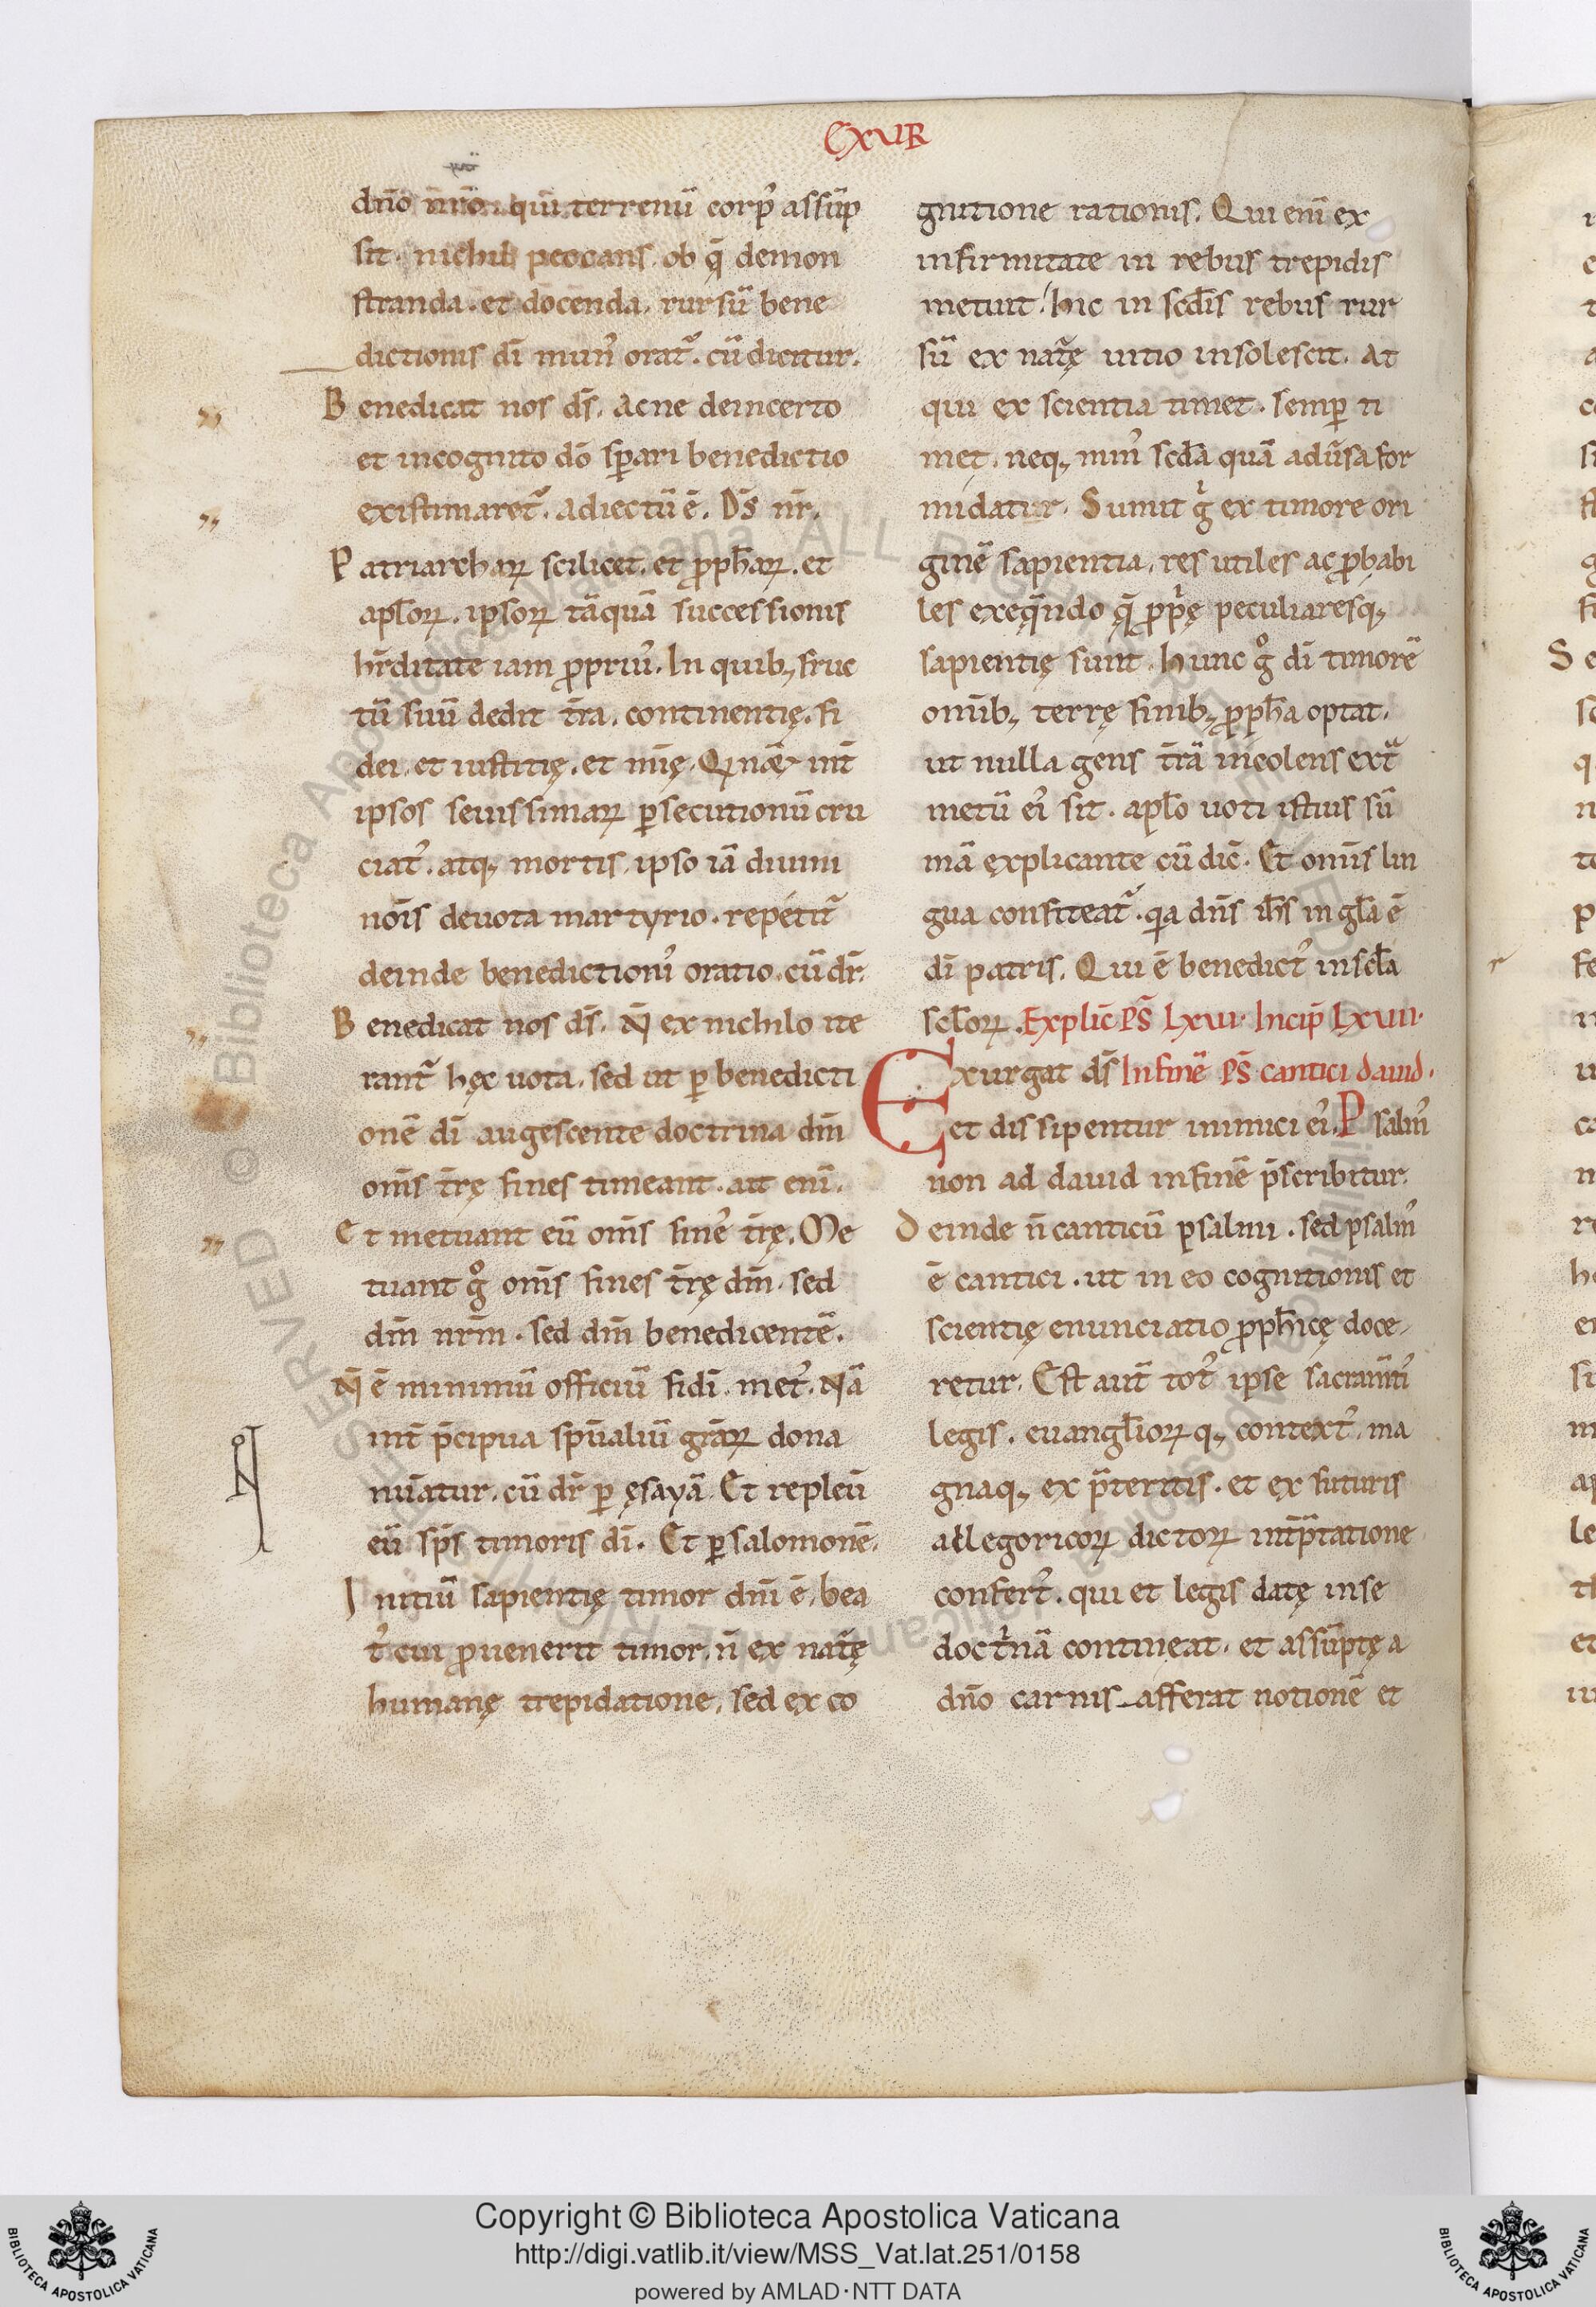 EXUR
dn̄o nr̄o qui terrenū corpꝰ assūp
sit. nichil peccans. ob q̄ demon
stranda. et docenda. rursū bene
dictionis dī munꝰ orat᷑. cū dicitur.
Benedicat nos ds̄. Ac ne de incerto
et incognito dō sꝑari benedictio
existimaret᷑. adiectū ē. Ds̄ nr̄.
Patriarchaꝝ scilicet. et ꝓph̄aꝝ. et
apl̄oꝝ. ipsoꝝ tāquā successionis
hr̄ditate iam ꝓpriuꝰ. In quibꝫ fruc
tū suū dedit tr̄a. continentię. fi
dei. et iustitię. et mīę. int̄
ipsos seuissimaꝝ ꝑsecutionū cru
ciatꝰ. atqꝫ mortis. ipso iā diuini
noīs deuota martyrio. repetit᷑
deinde benedictionꝰ oratio. cū dr̄.
Benedicat nos ds̄. N̄ ex nichilo ite
rant᷑ hęc uota. sed ut ꝑ benedicti
onē dī augescente doctrina dm̄
om̄s tr̄ę fines timeant. ait enī.
Et metuant eū om̄s finēs tr̄ę. Me
tuant gͦ om̄s fines tr̄ę dm̄. sed
dm̄ nr̄m. sed dm̄ benedicentē.
N̄ ē minimū officiū fidī metꝰ. Nā
int̄ p̄cipua sp̄ualiū gr̄aꝝ dona
nūatur. cū dr̄ ꝑ ęsayā. Et repleū
eū sp̄s timoris dī. Et ꝑ salomonē.
Initiū sapientię timor dn̄i ē. bea
tꝰ cui ꝓuenerit timor. n̄ ex nat᷑ę
humanę trepidatione. sed ex co
gnitione rationis. Qui enī ex
infirmitate in rebus trepidis
metuit. hic in scd̄is rebus rur
sū ex nat᷑ę uitio insolescit. At
qui ex scientia timet. semꝑ ti
met. neqꝫ minꝰ scd̄a quā aduͤsa for
midatur. Sumit gͥ ex timore ori
ginē sapientia. res utiles ac ꝓbabi
les exeq̄ndo q̄ ꝓpͥę peculiaresqꝫ
sapientię sunt. Hunc gͦ dī timorē
omībꝫ terrę finibꝫ ꝓph̄a optat.
ut nulla gens tr̄ā incolens ext᷑
metū eiꝰ sit. apl̄o uoti istius sū
mā explicante cū dic̄. Et om̄is lin
gua confiteat᷑. qa dn̄s ih̄s in gl̄a ē
dī patris. Qui ē benedictꝰ in scl̄a
scl̄oꝝ. Explic̄ Ps̄ LXVI. Incip̄ LXVII.
Exurgat ds̄ In finē Ps̄ cantici dauid.
et dissipentur inimici eiꝰ. Psalmꝰ
non ad dauid in finē p̄scribitur.
Deinde n̄ canticū psalmi. sed psalmꝰ
ē cantici. ut in eo cognitionis et
scientię enunciatio ꝓph̄icę doce
retur. Est aut̄ totꝰ ipse sacram̄ti
legis. euangl̄ioꝝ qꝫ contextꝰ. ma
gnaqꝫ ex p̄teritis. et ex futuris
allegoricoꝝ dictoꝝ int̄p̄tatione
confertꝰ. qui et legis datę in se
doctͥnā contineat. et assūptę a
dn̄o carnis afferat notionē et
Copyright © Biblioteca Apostolica Vaticana
http://digi.vatlib.it/view/MSS_Vat.lat.251/0158
powered by AMLAD·NTT DATA
BIBLIOTECA APOSTOLICA VATICANA
BIBLIOTECA APOSTOLICA VATICANA